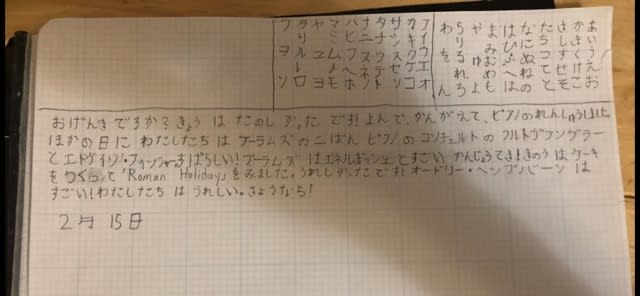 あいうえお
かきくけこ
さしすせそ
たちつてと
なにぬねの
はひふへほ
まみむめも
やゆよ
らりるれろ
わをん
アイウエオ
カキクケコ
サシスセソ
タチツテト
ナニヌネノ
ハヒフヘホ
マミムメモ
ヤユヨ
ラリルレロ
ワヲン
おげんきですか？きょう は たのしかった です！よんで、かんがえて、ピアノのれんしゅうしました。
ほかの日に わたしたち は ブーラムズの二ばん ピアノの コンチェルトの フルトヴァングラー
と エドヴィン・フィッシャー。すばらしい！ブーラムズ は エネルギッシュ とすごい かんじょうてき！きのう は ケーキ
をつくって「Roman Holiday」をみました。うれしかったです！オードリー・ヘンプバーン は
すごい！わたしたち は うれしい。さようなら！
2月 15日